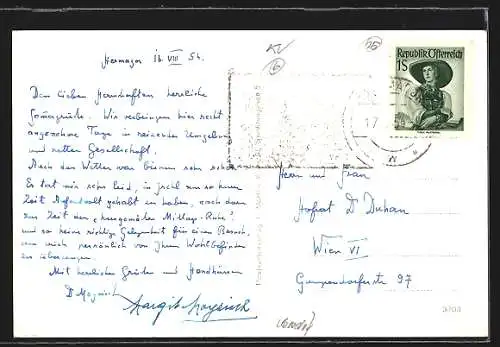 Hermagor 16. VIII 54.
Den lieben Herrschaften herzliche
Sommergrüße. Wir verbringen hier recht
angenehme Tage in reizender Umgebung
und netter Gesellschaft.
Auch das Wetter war bisher sehr schön.
Es tat mir sehr leid, in Ischl nur so kurze
Zeit Aufenthalt gehabt zu haben, noch dazu
zur Zeit der "kurgemäßen Mittags-Ruhe"
und so keine richtige Gelegenheit für einen Besuch,
um mich persönlich von Ihrem Wohlbefinden
zu überzeugen.
Mit herzlichen Grüßen und Handküssen
Margit
Republik Österreich
1S
Herrn und Frau
Hofrat Dr Duhan
Wien VI
Gumpendorferstr 97
3703